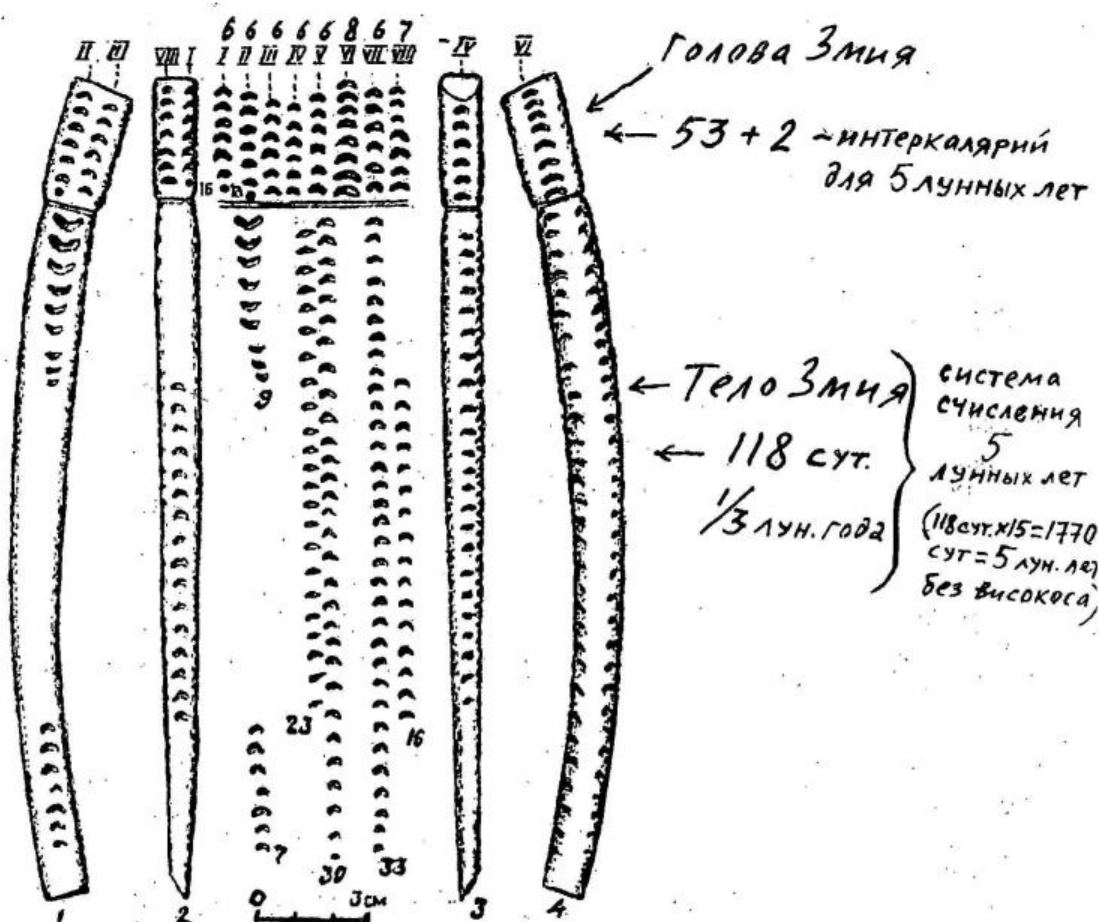 6 6 6 6 6 8 6 7
II III VIII I I II III IV V VI VII VIII IV VI
Голова Змия
← 53 + 2 – интеркалярий
для 5 лунных лет
16 18
9
← Тело Змия
← 118 сут.
1/3 лун. года
система
счисления
5
лунных лет
(118 сут. × 15 = 1770
сут = 5 лун. лет
без високоса)
23 16
7 30 33
0 3 см
1 2 3 4